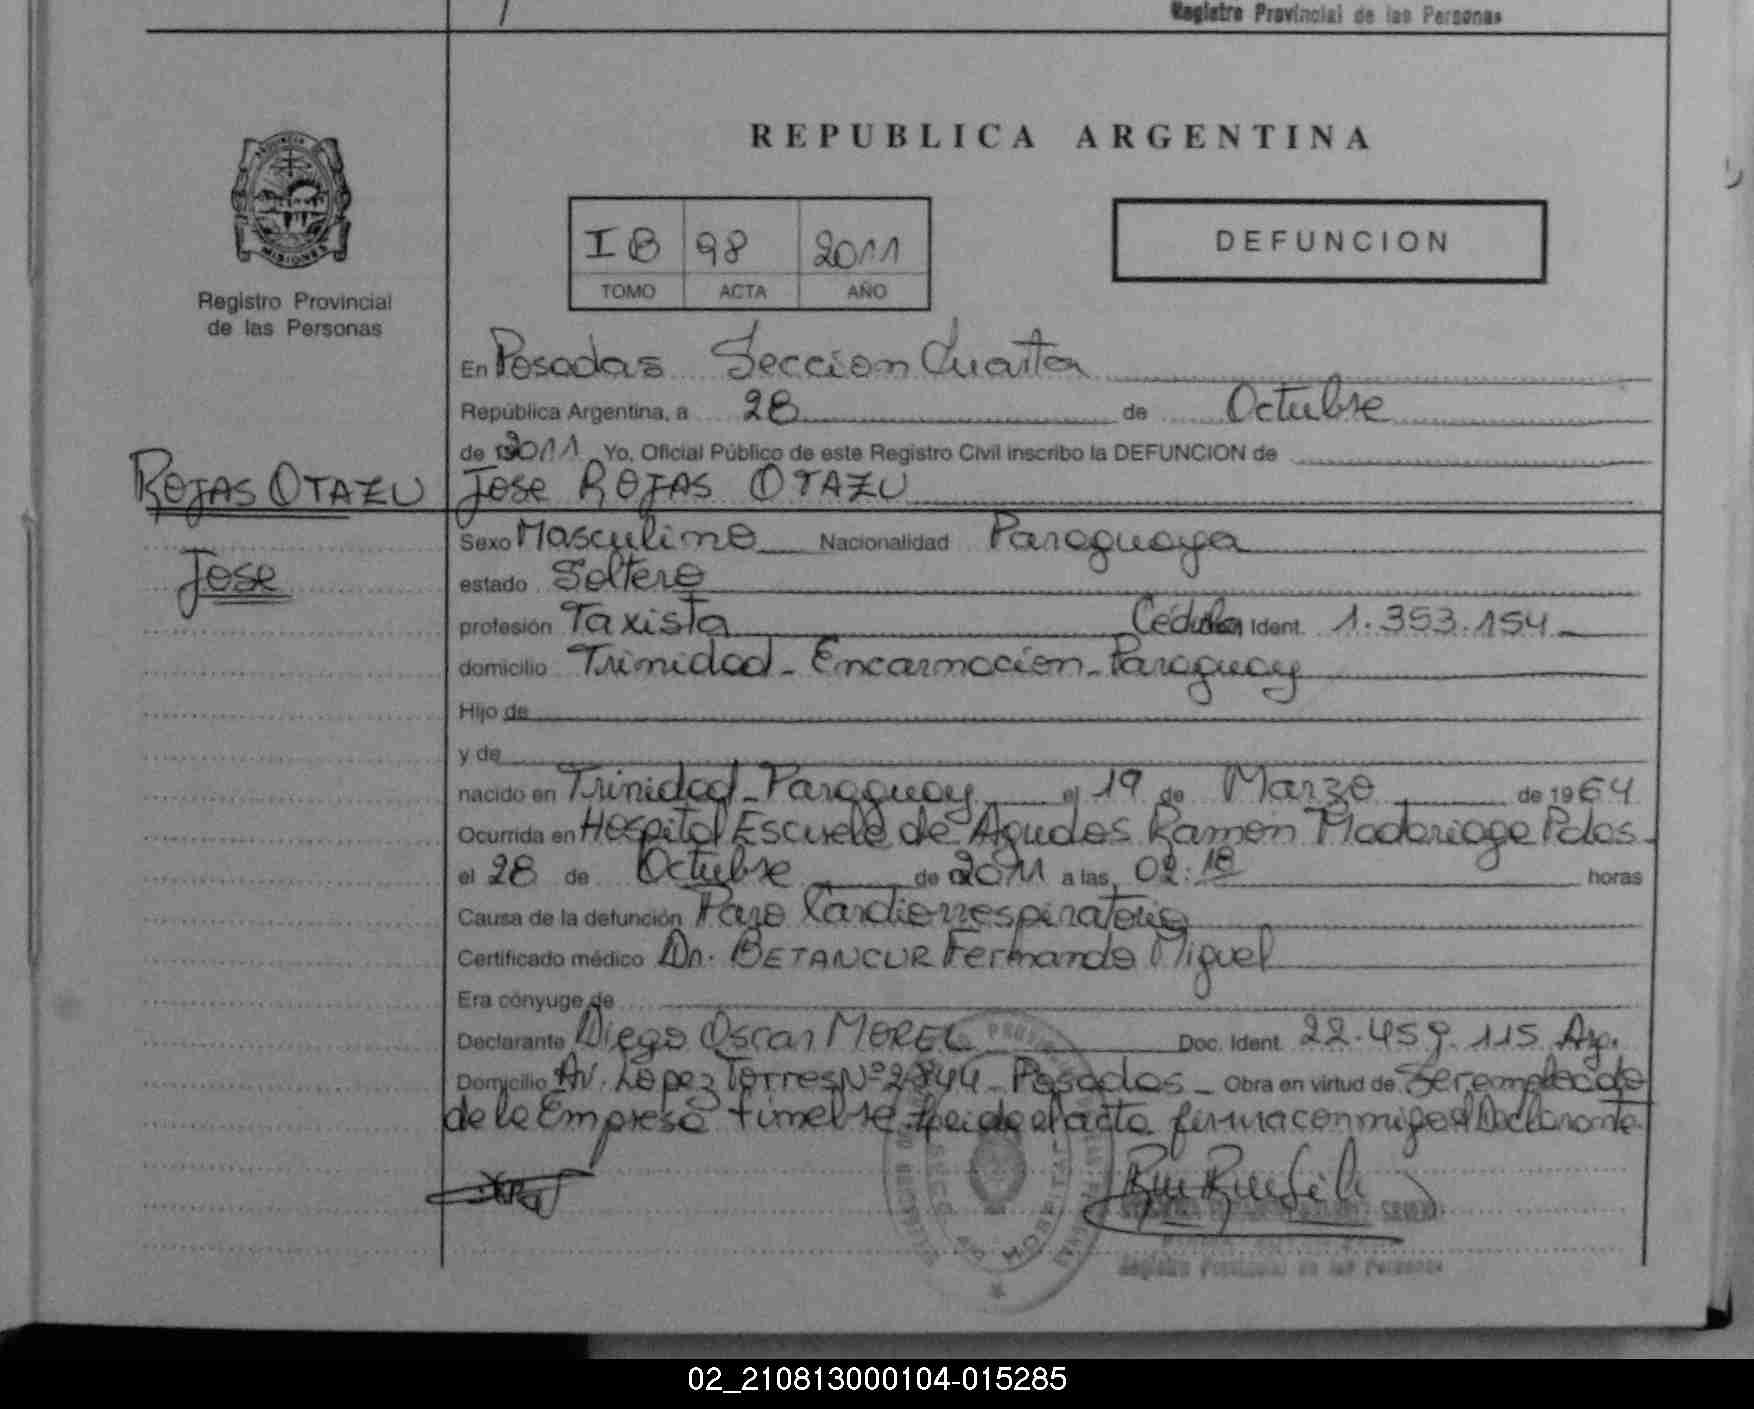 Registro Provincial de las Personas
REPUBLICA ARGENTINA
IB 98 2011
TOMO ACTA AÑO
DEFUNCION
MISIONES
Registro Provincial
de las Personas
En Posadas Seccion Cuarta
República Argentina, a 28 de Octubre
de 2011 Yo, Oficial Público de este Registro Civil inscribo la DEFUNCION de
ROJAS OTAZU
Jose ROJAS OTAZU
Jose
Sexo Masculino Nacionalidad Paraguaya
estado Soltero
profesión Taxista Cédula Ident. 1.353.154
domicilio Trinidad - Encarnacion - Paraguay
Hijo de
y de
nacido en Trinidad - Paraguay el 19 de Marzo de 1964
Ocurrida en Hospital Escuela de Agudos Ramon Madariaga Pdas.
el 28 de Octubre de 2011 a las 02:18 horas
Causa de la defunción Paro Cardiorrespiratorio
Certificado médico Dr. BETANCUR Fernando Miguel
Era cónyuge de
Declarante Diego Oscar MOREL Doc. Ident. 22.459.115 Arg.
Domicilio Av. Lopez Torres Nº 2844 - Posadas - Obra en virtud de Ser empleado
de la Empresa funebre. Leida el acta firma conmigo el Declarante.
HOSPITAL
Registro Provincial de las Personas
02_210813000104-015285